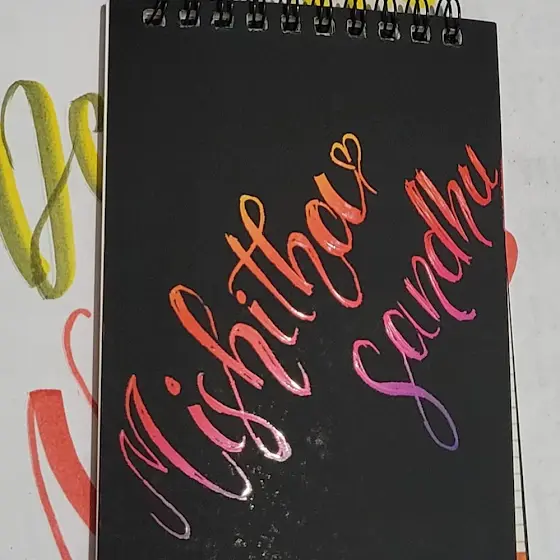 Mishitha
Sandhu